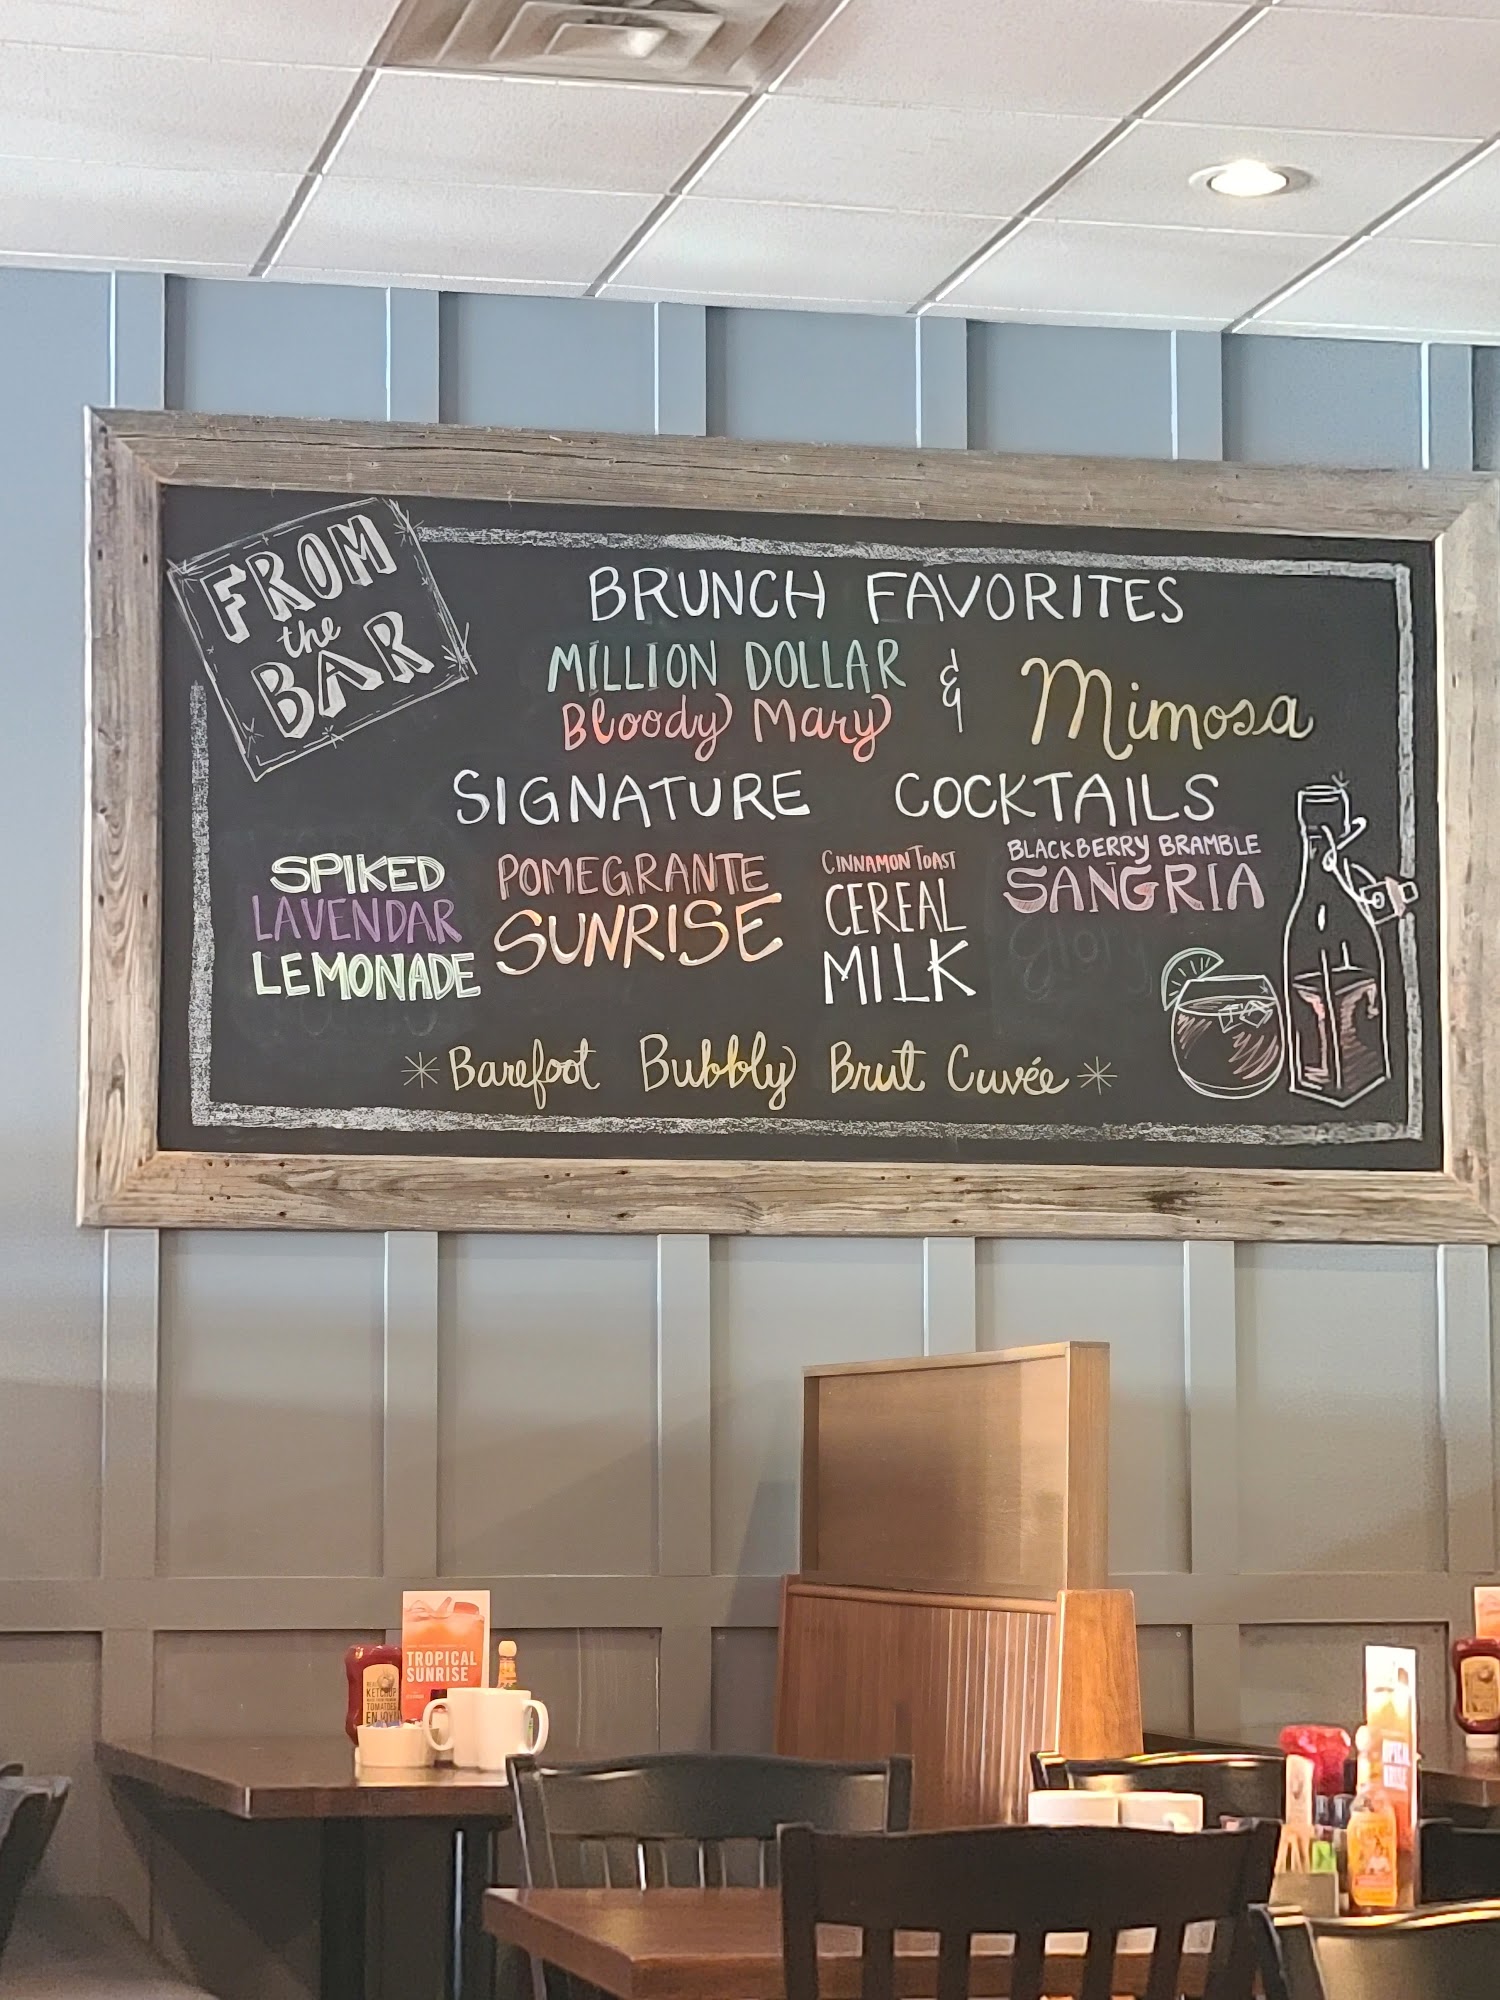 FROM
the
BAR
BRUNCH FAVORITES
MILLION DOLLAR
Bloody Mary
& Mimosa
SIGNATURE COCKTAILS
SPIKED
LAVENDAR
LEMONADE
POMEGRANTE
SUNRISE
CINNAMON TOAST
CEREAL
MILK
BLACKBERRY BRAMBLE
SANGRIA
Barefoot Bubbly Brut Cuvée
TROPICAL
SUNRISE
KETCHUP
TOMATOES
ENJOY